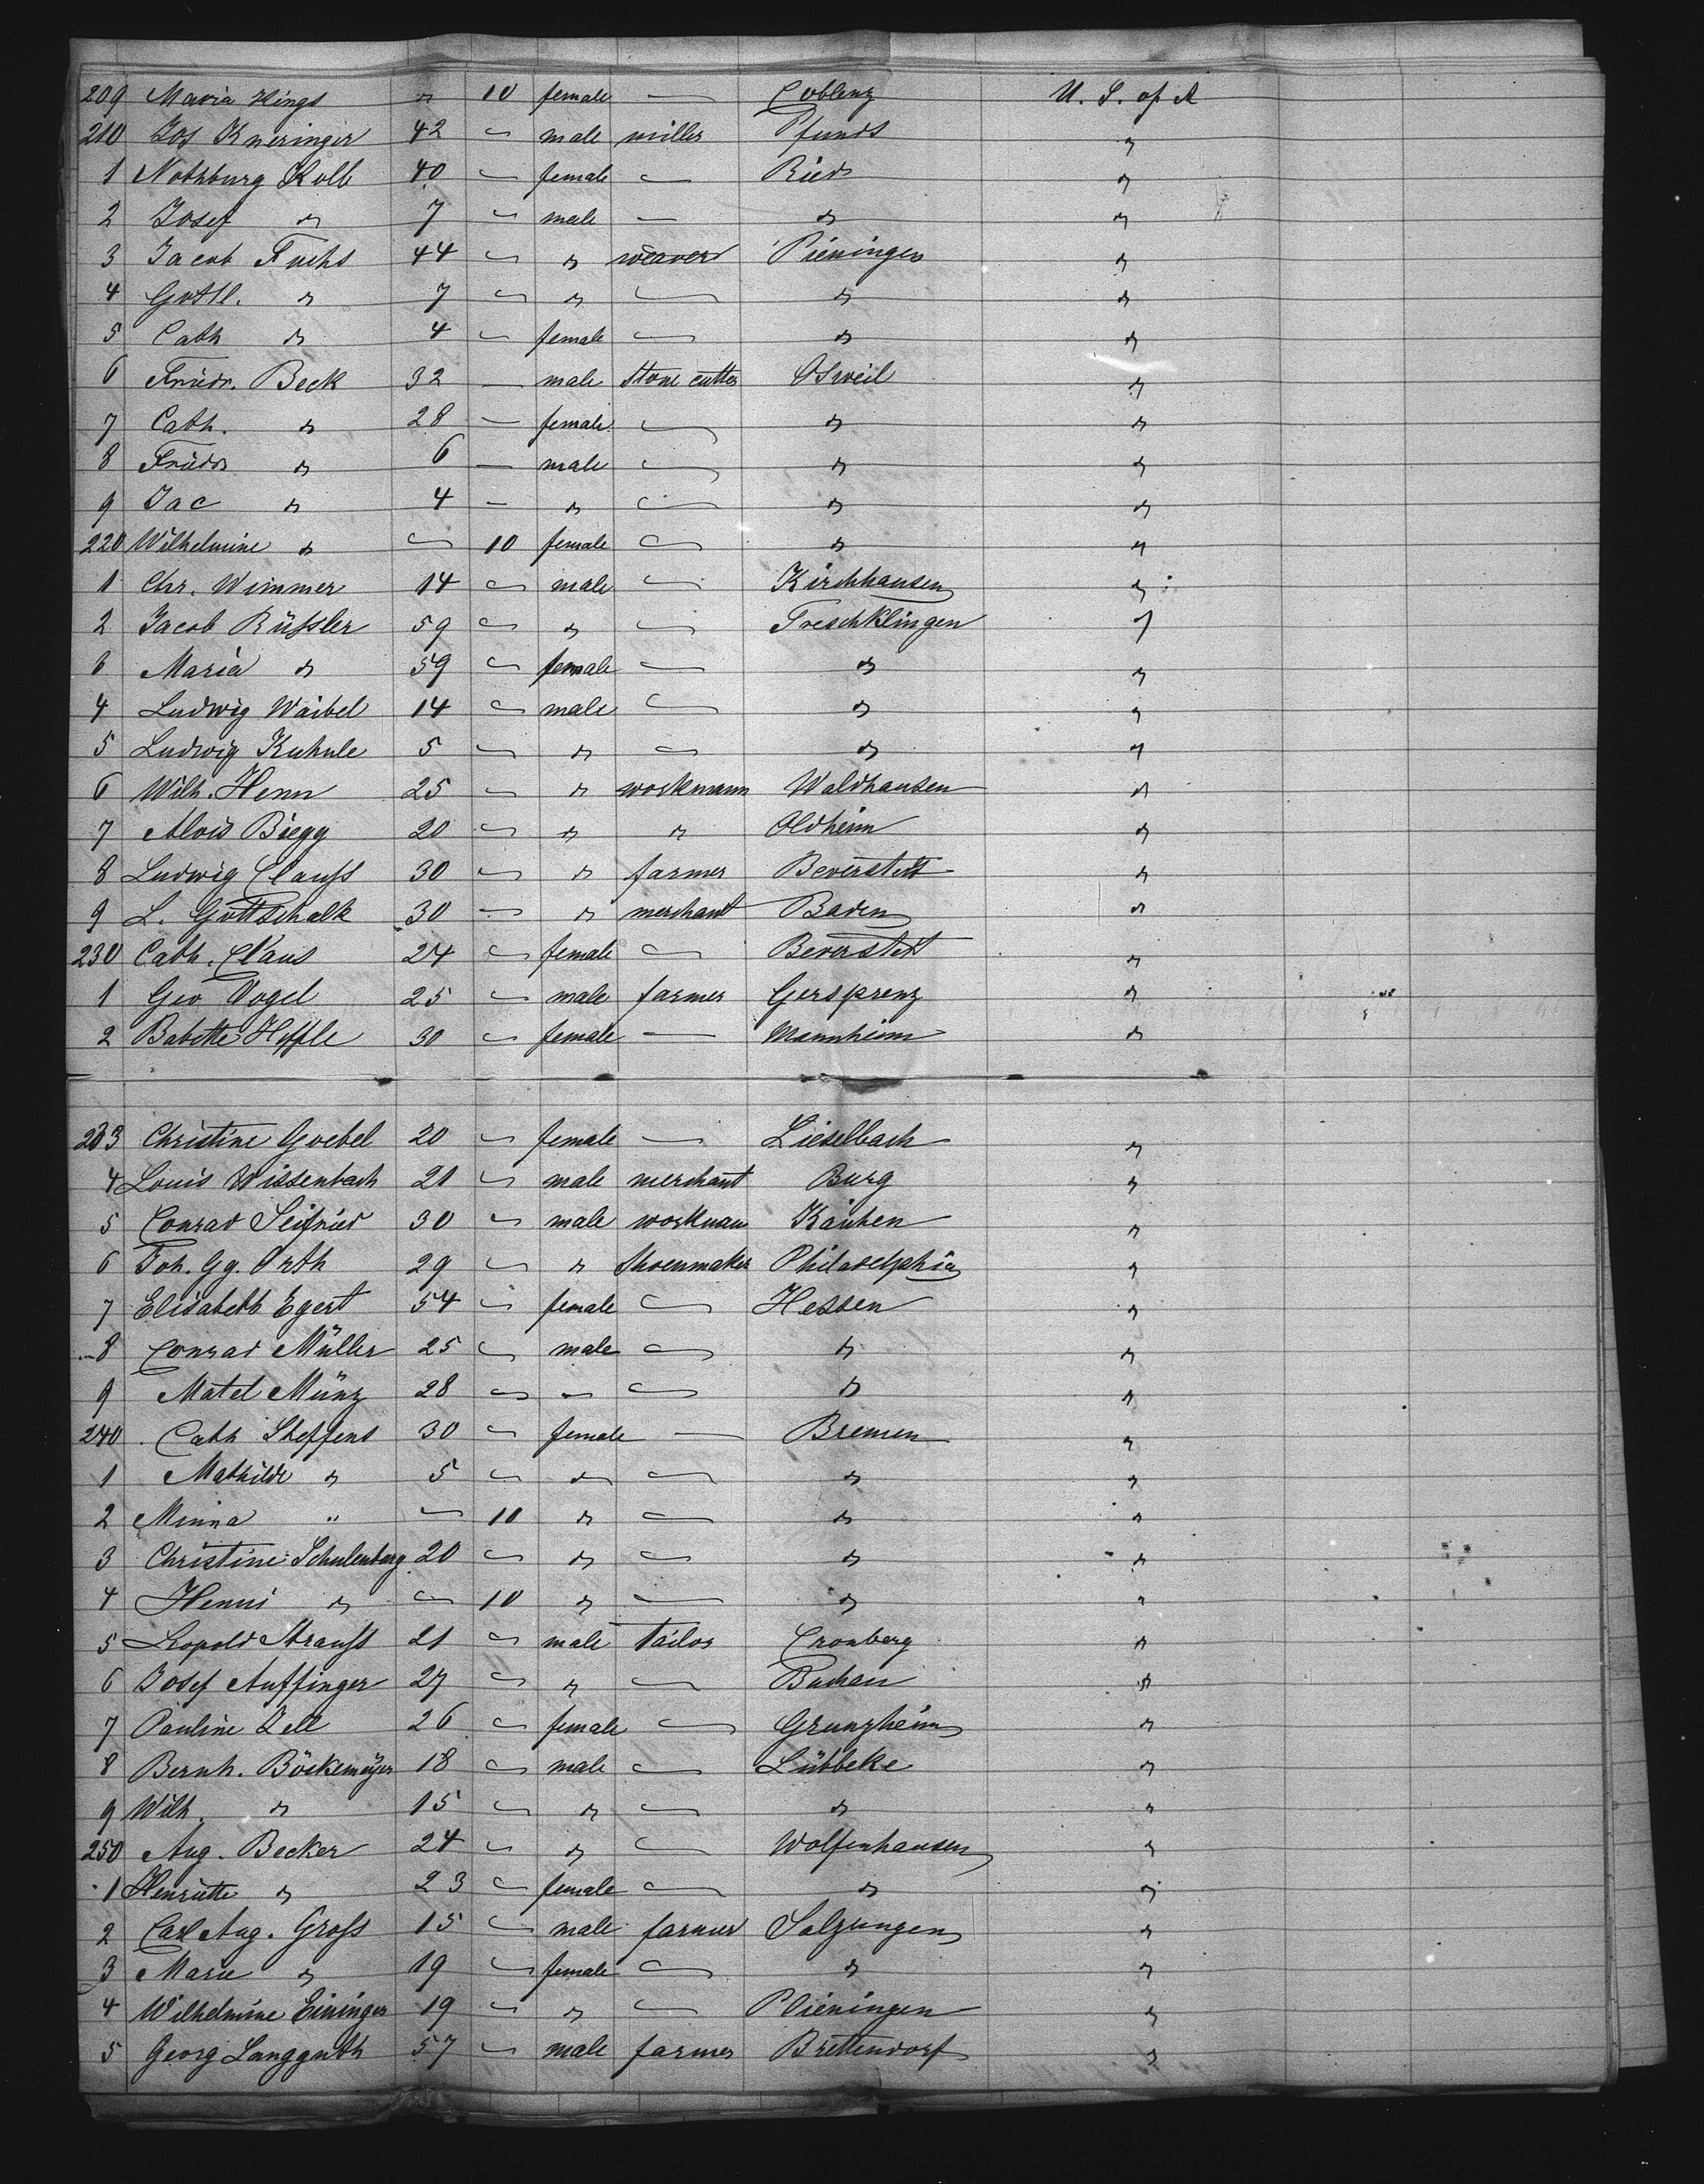 209 Maria Kings " 10 female — Coblenz U. S. of A
210 Jos Kneringer 42 — male miller Pfunds "
1 Nothburg Kolb 40 — female — Ried "
2 Josef " 7 — male — " "
3 Jacob Fuchs 44 — " weaver Pieningen "
4 Gottl. " 7 — " — " "
5 Cath " 4 — female — " "
6 Friedr. Beck 32 — male Stone cutter Osweil "
7 Cath. " 28 — female — " "
8 Friedr " 6 — male — " "
9 Jac " 4 — " — " "
220 Wilhelmine " — 10 female — " "
1 Chr. Wimmer 14 — male — Kirchhausen "
2 Jacob Büssler 59 — " — Treschklingen "
6 Maria " 59 — female — " "
4 Ludwig Waibel 14 — male — " "
5 Ludwig Kuhnle 5 — " — " "
6 Wilh. Henn 25 — " workmann Waldhausen "
7 Alois Biegg 20 — " " Oldheim "
8 Ludwig Clauss 30 — " farmer Beverstedt "
9 L. Gottschalk 30 — " merchant Baden "
230 Cath. Claus 24 — female — Beverstedt "
1 Geo Vogel 25 — male farmer Gersprenz "
2 Babette Heffle 30 — female — Mannheim "
233 Christine Goebel 20 — female — Lieselbach "
4 Louis Wissenbach 21 — male merchant Burg "
5 Conrad Seifried 30 — male workman "
6 Joh. Gg. Orth 29 — " Shoenmaker Philadelphia "
7 Elisabeth Egert 54 — female — Hessen "
8 Conrad Müller 25 — male — " "
9 Matel Münz 28 — " — " "
240 Cath Steffens 30 — female — Bremen "
1 Mathilde " 5 — " — " "
2 Minna " — 10 " — " "
3 Christine Schulenburg 20 — " — " "
4 Henni " — 10 " — " "
5 Leopold Strauss 21 — male tailor Cronberg "
6 Josef Auffinger 27 — " — Buchau "
7 Pauline Zell 26 — female — Grunzheim "
8 Bernh. Böckemeyer 18 — male — Lübbeke "
9 Wilh. " 15 — " — " "
250 Aug. Becker 24 — " — Wolfenhausen "
1 Henriette " 23 — female — " "
2 Carl Aug. Gross 15 — male farmer Salzungen "
3 Marie " 19 — female — " "
4 Wilhelmine Eininger 19 — " — Plieningen "
5 Georg Langguth 57 — male farmer Brettendorf "